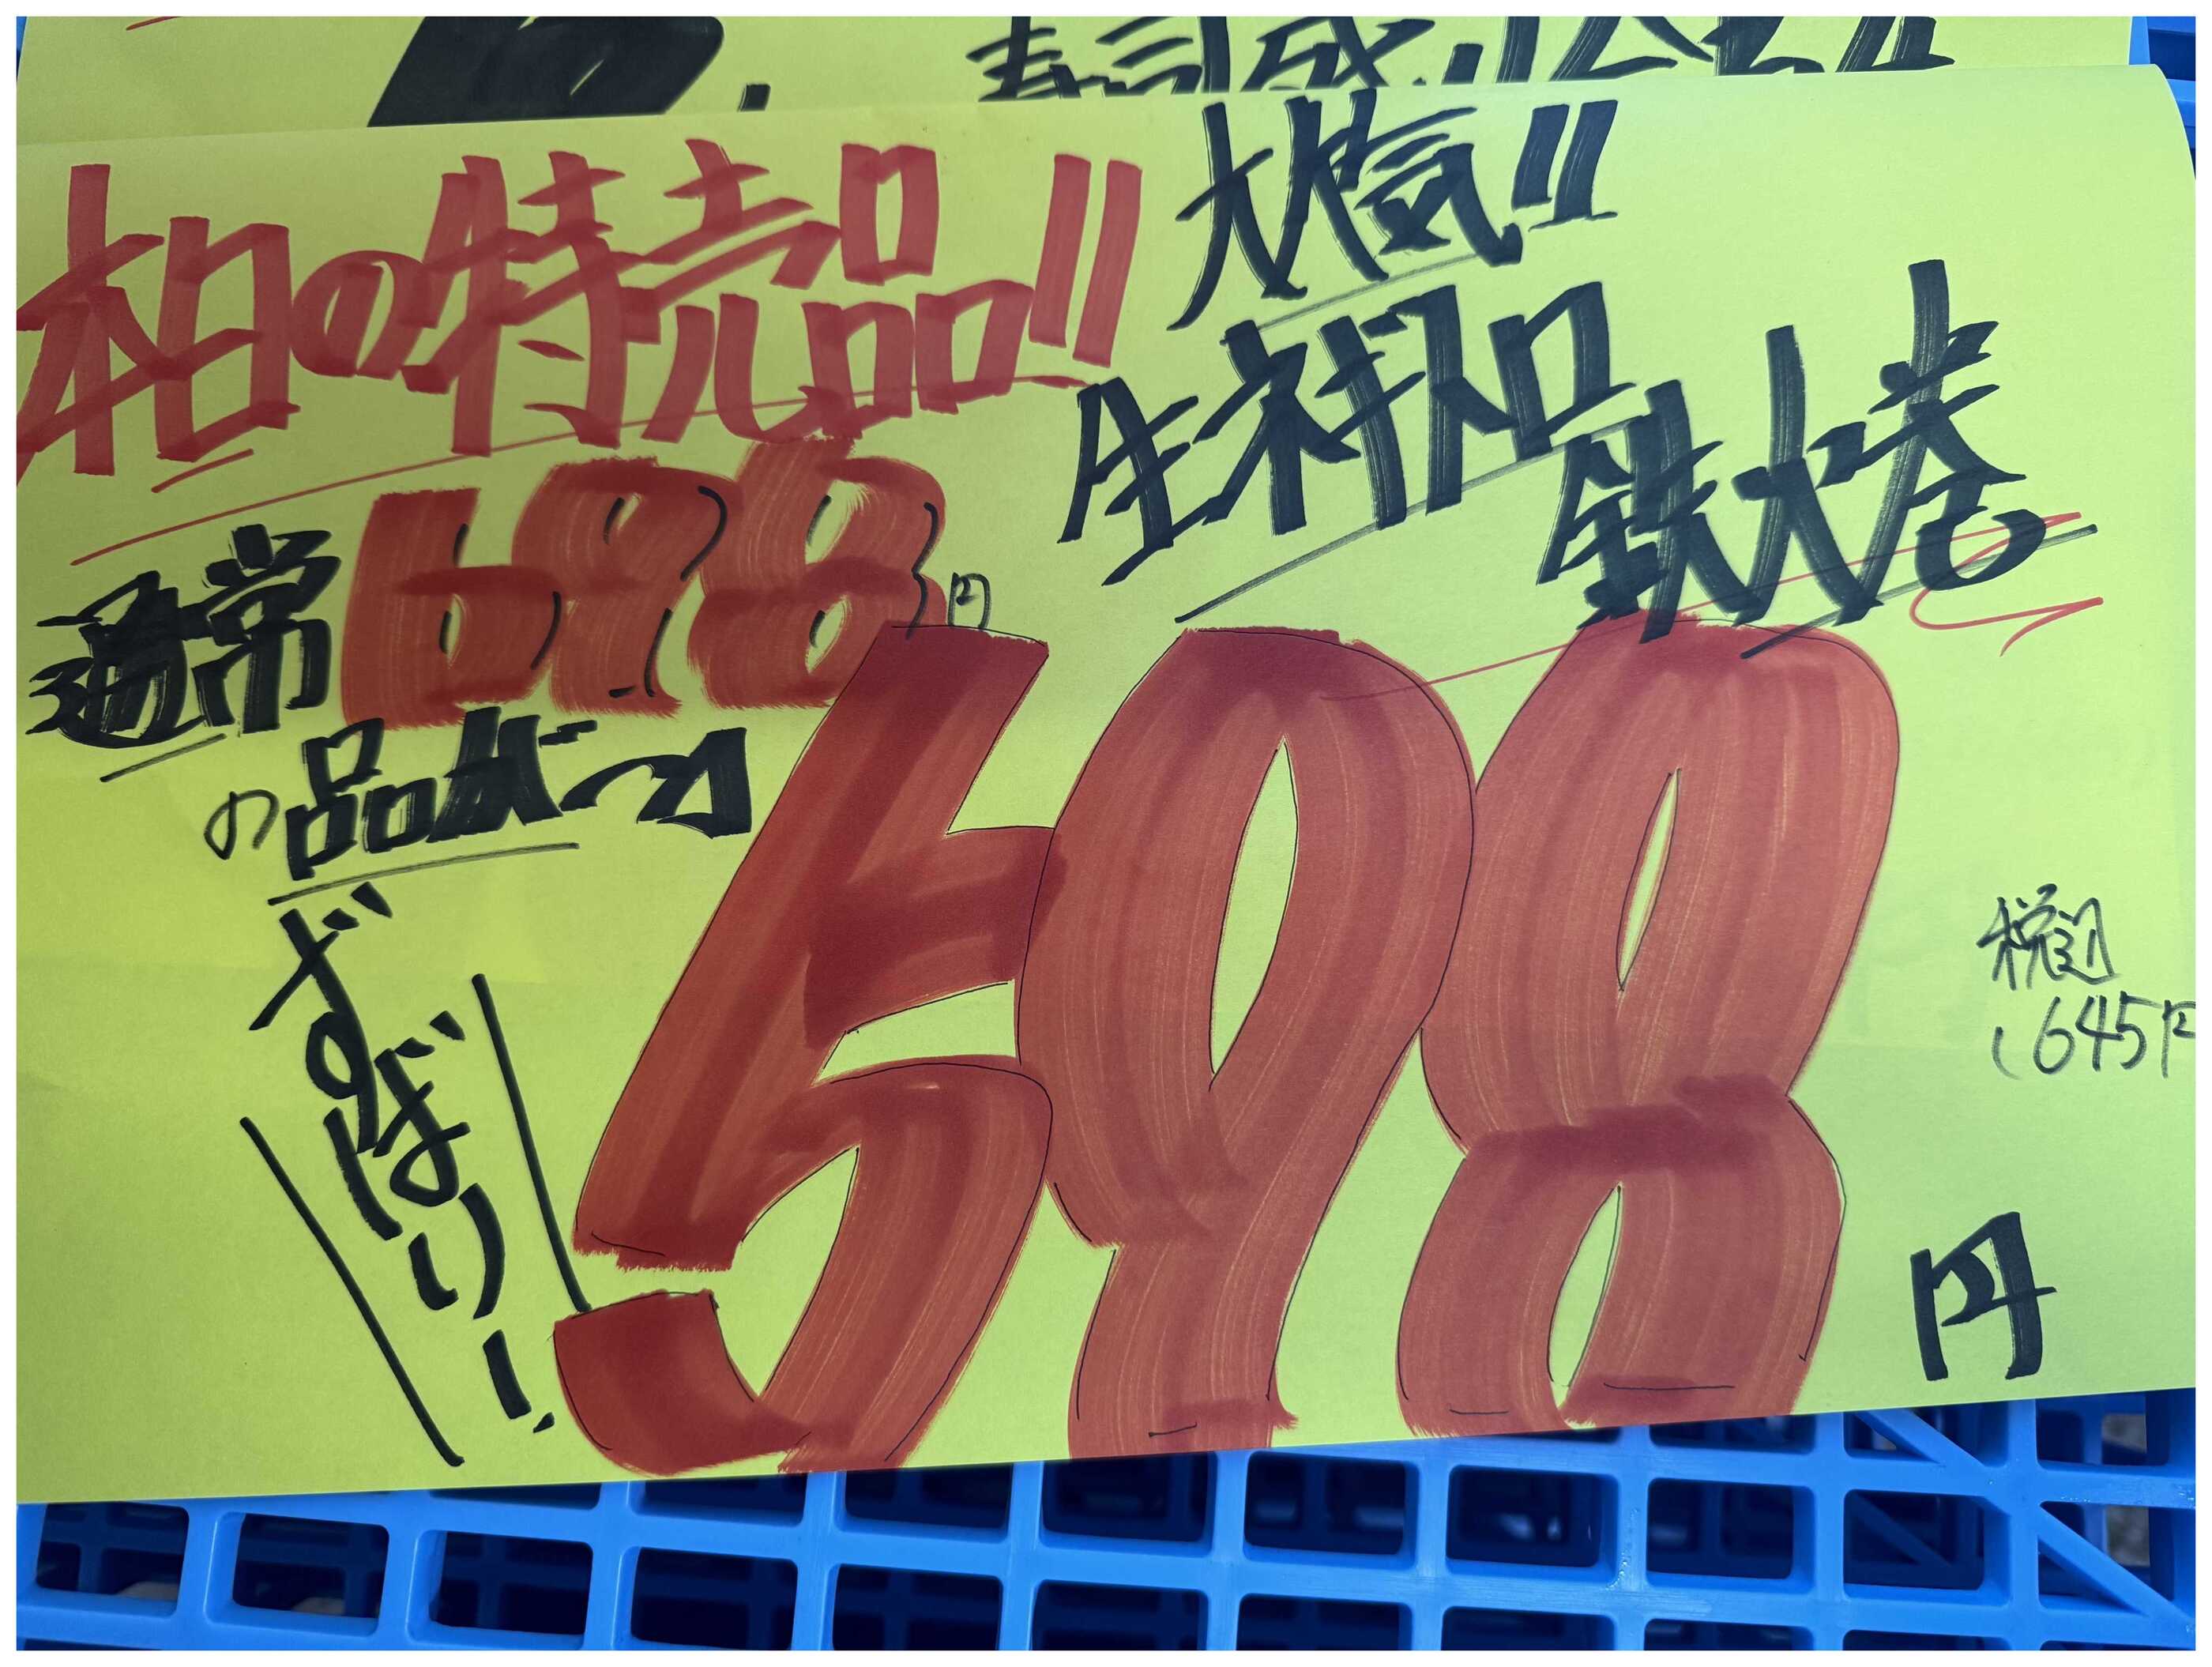 寿司盛り合わせ
本日の特売品!!
大人気!!
生ネギトロ
鉄火巻
通常698円
の品が〜
ずばり!
598円
税込
(645円